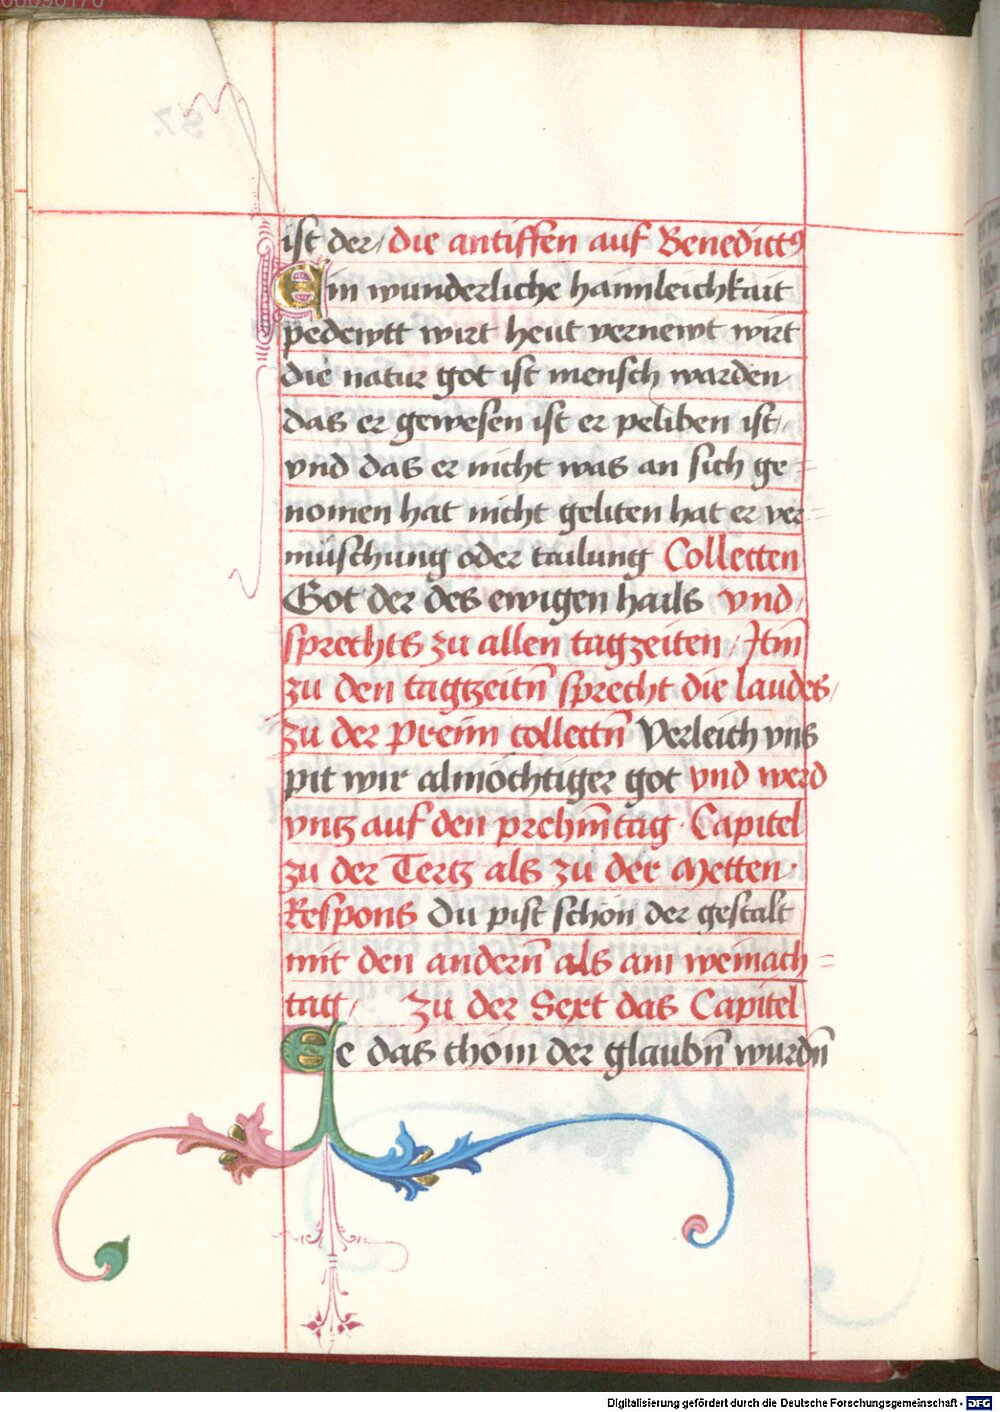 ist der / die antiffen auf Benedictꝰ
Ein wunderliche haimleichkait
pedewtt wirt heut vernewt wirt
die natur got ist mensch warden /
das er gewesen ist er peliben ist //
vnd das er nicht was an sich ge=
nomen hat nicht geliten hat er ver=
müschung oder tailung Collecten
Got der des ewigen hails vnd /
sprechts zu allen tagzeiten / Itm̄
zu den tagtzeitn̄ sprecht die laudes /
zu der Preim collectn̄ Verleich vns
pit wir almöchtiger got vnd werd
vntz auf den prehm̄tag · Capitel
zu der Tertz als zu der Metten ·
Respons du pist schön der gestalt
mit den andern̄ als am weinach=
tag / Zu der Sext das Capitel
Ee das thoin der glaubn̄ wurdn̄
Digitalisierung gefördert durch die Deutsche Forschungsgemeinschaft - DFG